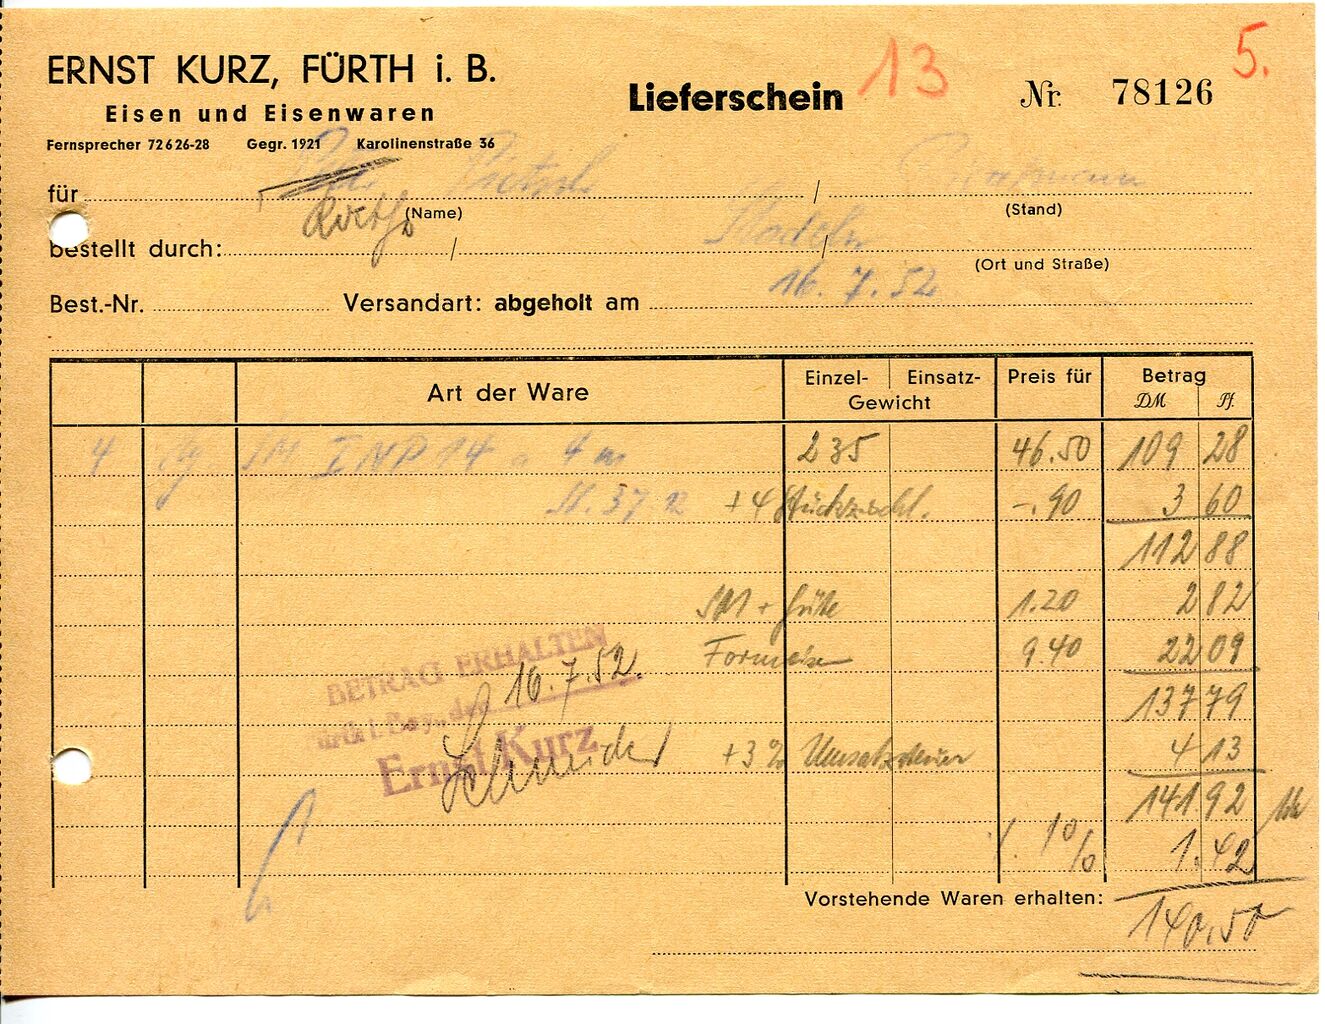 ERNST KURZ, FÜRTH i. B.
Eisen und Eisenwaren
Fernsprecher 72626-28 Gegr. 1921 Karolinenstraße 36
Lieferschein 13 Nr. 78126 5.
für
(Name) (Stand)
bestellt durch: Stadeln
(Ort und Straße)
Best.-Nr. Versandart: abgeholt am 16.7.52
Art der Ware Einzel- Einsatz- Gewicht Preis für Betrag DM Pf.
4 SM INP 14 a 4 m 235 46.50 109 28
St. 37 12 +4 Stückzuschl. -.90 3 60
112 88
SM + Güte 1.20 2 82
Formeisen 9.40 22 09
137 79
BETRAG ERHALTEN
16.7.52.
Fürth i. Bay., den
Ernst Kurz
Schneider
+3% Umsatzsteuer 4 13
141 92
·/. 1% 1.42
Vorstehende Waren erhalten:
140,50